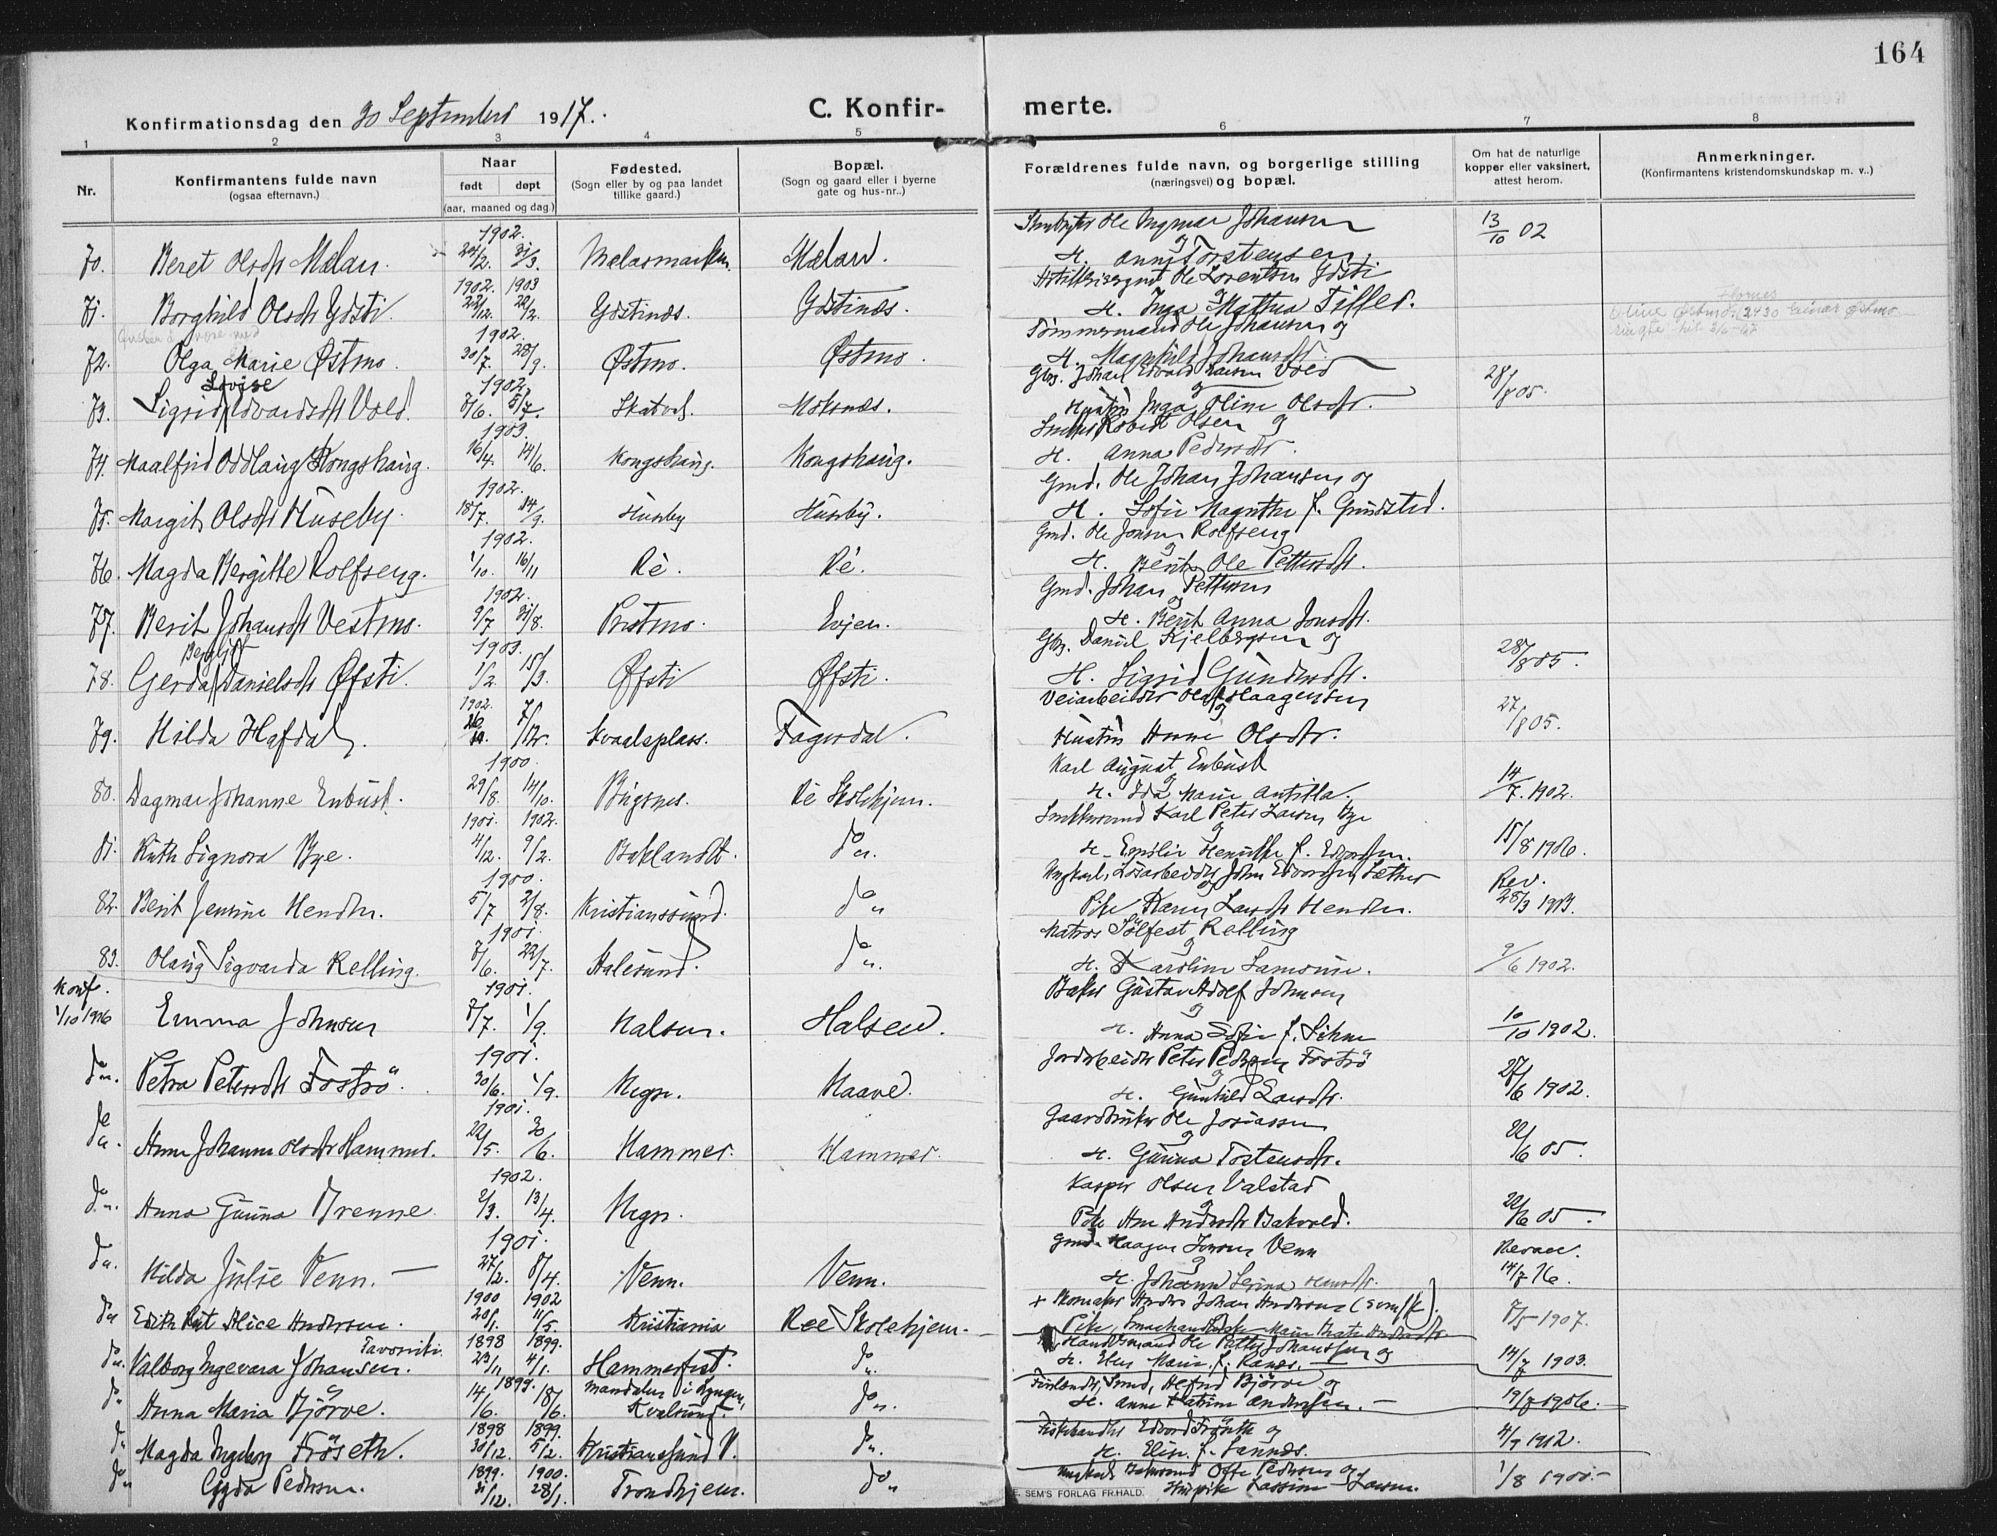 164
Konfirmationsdag den 30 September 1917.
C. Konfirmerte.
1 2 3 4 5 6 7 8
Nr.
Konfirmantens fulde navn
(ogsaa efternavn.)
Naar
født døpt
(aar, maaned og dag.)
Fødested.
(Sogn eller by og paa landet
tillike gaard.)
Bopæl.
(Sogn og gaard eller i byerne
gate og hus-nr..)
Forældrenes fulde navn, og borgerlige stilling
(næringsvei) og bopæl.
Om hat de naturlige
kopper eller vaksinert,
attest herom.
Anmerkninger.
(Konfirmantens kristendomskundskap m. v..)
70. Beret Olsdtr Mælan. 1902. 24/2. 31/3. Mælasmarken. Mælan. Ole Ingmar Johansen og H. Anne Torstensen. 13/10 02
71. Borghild Olsdtr Ydsti. 1902. 1903 22/12. 22/2. Ydstines. Ydstines. Ole Lorentsen Ydsti og H. Inga Mathea Tiller.
72. Olga Marie Østmo. 1902. 30/7. 28/9. Østmo. Østmo. Tømmermand Ole Johansen og H. Magnhild Johansdtr.
73. Sigrid Lovise Edvardsdtr Vold. 1902. 7/6. 6/7. Skatval. Moksnes. Gbr. Johan Edvard Larsen Vold og Hustru Inga Oline Olsdtr. 28/8 05.
74. Maalfrid Oddlaug Kongshaug. 1903. 16/4. 14/6. Kongshaug. Kongshaug. Robert Olsen og H. Anna Pedersdtr.
75. Margit Olsdtr Huseby. 1902. 18/7. 14/9. Huseby. Huseby. Gmd. Ole Johan Johansen og H. Sofie Magnthe f. Grundsted.
76. Magda Bergitte Rolfseng. 1902. 1/10. 16/11 Ré. Ré. Gmd. Ole Jonsen Rolfseng og H. Berit Ole Pettersdtr.
77. Berit Johansdtr Vestmo. 1902. 9/7 31/8. Pristmo. Evjen. Gmd. Johan Pettersen og H. Berit Anna Jonsdtr.
78. Gerda Bergljot Danielsdtr Øfsti. 1903. 1/2 15/3. Øfsti Øfsti. Gbr. Daniel Kjelbergsen og H. Sigrid Gundersdtr. 28/8 05.
79. Hilda Hafdal. 1902. 7/12. Kvaalsplass. Fagerdal. Veiarbeider Olaf Haagensen og Hustru Anne Olsdtr. 27/8 05.
80. Dagmar Johanne Enbusk. 1900. 29/8. 14/10. Bugønes. Ré Skolehjem. Karl August Enbusk og H. Ida Marie Antilla. 14/7. 1902.
81. Ruth Signora Bye. 1901. 1902. 4/12. 9/2. Baklandet. do. Karl Peter Larsen Bye og H. Henrikke f. Edvardsen. 15/8 1906.
82. Berit Jensine Henden. 1900. 5/7 2/8. Kristianssund. do " Ungkarl, Løsarbeider John Edvardsen Sæther og Pike Karen Larsdtr Henden. Rev. 28/3 1913.
83. Olaug Sigvarda Relling. 1901. 7/6. 22/7. Aalesund. do ". Matros Sølfest Relling og H. Karoline Samsine. 9/6 1902.
Konf. 1/10 1916 Emma Johnsen 1901. 7/7. 1/9. Halsen. Halsen. Baker Gustav Adolf Johnsen og H. Anna Sofie f. Lihm 10/10 1902.
do ". Petra Petersdtr Fostrø. 1901. 30/6. 1/9. Hegre. Kaave. Jordarbeider Peter Pedersen Fostrø og H. Gunhild Larsdtr. 27/6 1902.
do ". Anne Johanne Olsdtr Hammer. 1901. 22/5. 30/6. Hammer. Hammer. Gaardbruker Ole Josiassen og H. Gunna Tostensdtr. 22/6 05.
do ". Anna Gunna Brenne. 1902. 2/3. 13/4. Hegre. Kasper Olsen Valstad og Pike Ane Andersdtr Bakvold. 22/6 05.
do ". Hilda Julie Venn. 1901. 27/2. 8/4. Venn. Venn. Gmd. Haagen Jonsen Venn og H. Johanne Serina Hansdtr. Revac. 14/7 16.
do " Edith Rut Alice Andersen. 1900 1902 20/1. 11/5. Kristiania Ree Skolehjem. + Skomaker Anders Johan Andersen (svensk). Pike, 7/5 1907.
do ". Valborg Ingevara Favoriti Johansen. 1898 1899. 23/11 4/1. Hammerfest. do ". Ole Petter Johanssen og H. Elen Marie f. Ranes. 14/7 1903.
do " Anna Maria Bjørve. 1899. 14/6. 18/6. Mandalen i Lyngen, Kvalsund. do ". Alfred Bjørve og H. Anne Katrine Andersen. 19/7 1906.
do " Magda Ingeborg Frøseth. 1898 1899. 30/12. 5/2. Kristianssund N. do ". Fiskehandler Edvard Frøseth og H. Elise f. Sannes. 4/9 1912.
do " Gyda Pedersen. 1899. 1900. 31/12. 28/1. Trondhjem. do " Ungkarl Offe Pedersen og Lassine Larsen. 1/8 1900.
E. SEM'S FORLAG FR.HALD.